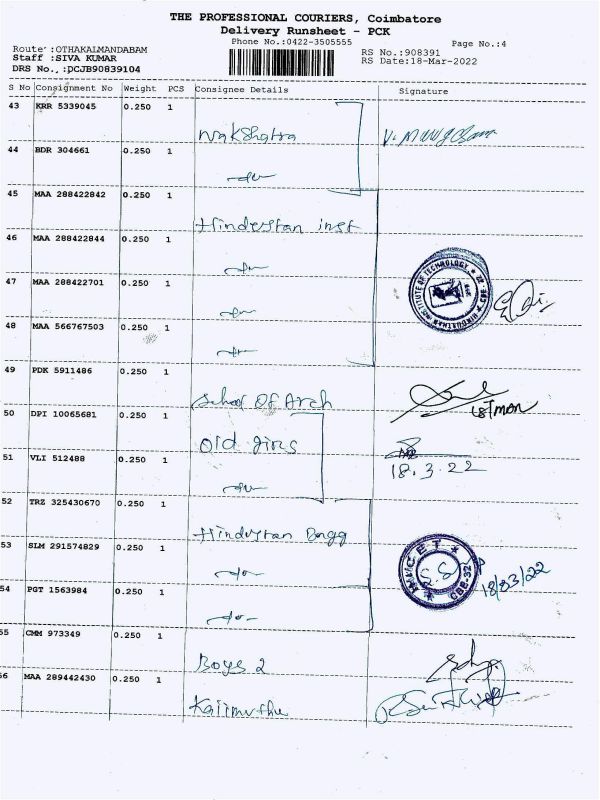 THE PROFESSIONAL COURIERS, Coimbatore
Delivery Runsheet - PCK
Phone No.:0422-3505555
Page No.:4
Route :OTHAKALMANDABAM
RS No.:908391
Staff :SIVA KUMAR
RS Date:18-Mar-2022
DRS No.,:DCJB90839104
S No Consignment No Weight PCS Consignee Details Signature
43 KRR 5339045 0.250 1
Nakshatra
44 BDR 304661 0.250 1
-do-
45 MAA 288422842 0.250 1
Hindustan inst
46 MAA 288422844 0.250 1
-do-
47 MAA 288422701 0.250 1
-do-
48 MAA 566767503 0.250 1
-do-
INSTITUTE OF TECHNOLOGY
49 PDK 5911486 0.250 1
School Of Arch
50 DPI 10065681 0.250 1
Old girls
18.3.22
51 VLI 512488 0.250 1
-do-
52 TRZ 325430670 0.250 1
Hindustan Engg
53 SLM 291574829 0.250 1
-do-
HICET
CBE-32
18/03/22
54 PGT 1563984 0.250 1
-do-
55 CMM 973349 0.250 1
Boys 2
56 MAA 289442430 0.250 1